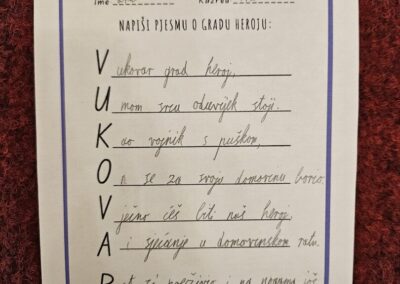 Ime
Razred
NAPIŠI PJESMU O GRADU HEROJU:
Vukovar grad heroj,
U mom srcu oduvijek stoji.
Kao vojnik s puškom,
On se za svoju domovinu borio
Vječno ćeš biti naš heroj,
A i sjećanje u domovinskom ratu.
R i na nogama još